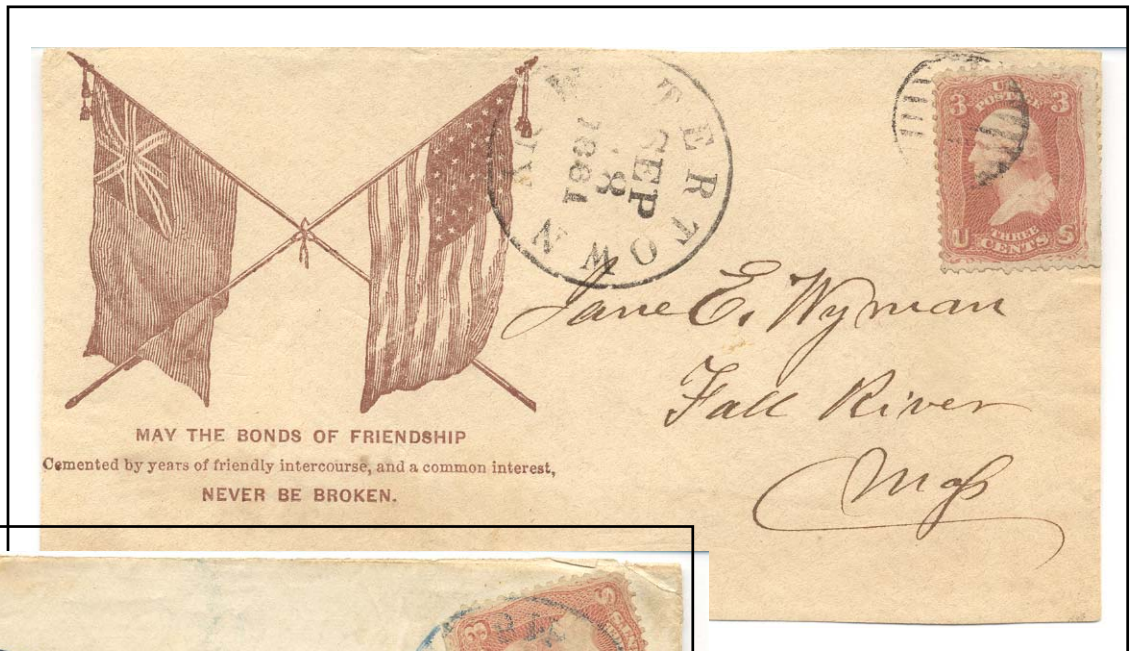 WATERTOWN
N.Y.
SEP
18
1861
3 U.S. 3
POSTAGE
U THREE S
CENTS
Jane E. Wyman
Fall River
Mass
MAY THE BONDS OF FRIENDSHIP
Cemented by years of friendly intercourse, and a common interest,
NEVER BE BROKEN.
3